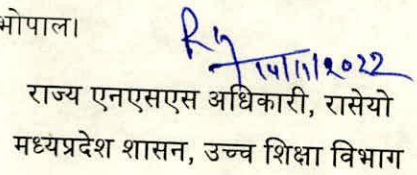 भोपाल।
14/11/2022
राज्य एनएसएस अधिकारी, रासेयो
मध्यप्रदेश शासन, उच्च शिक्षा विभाग